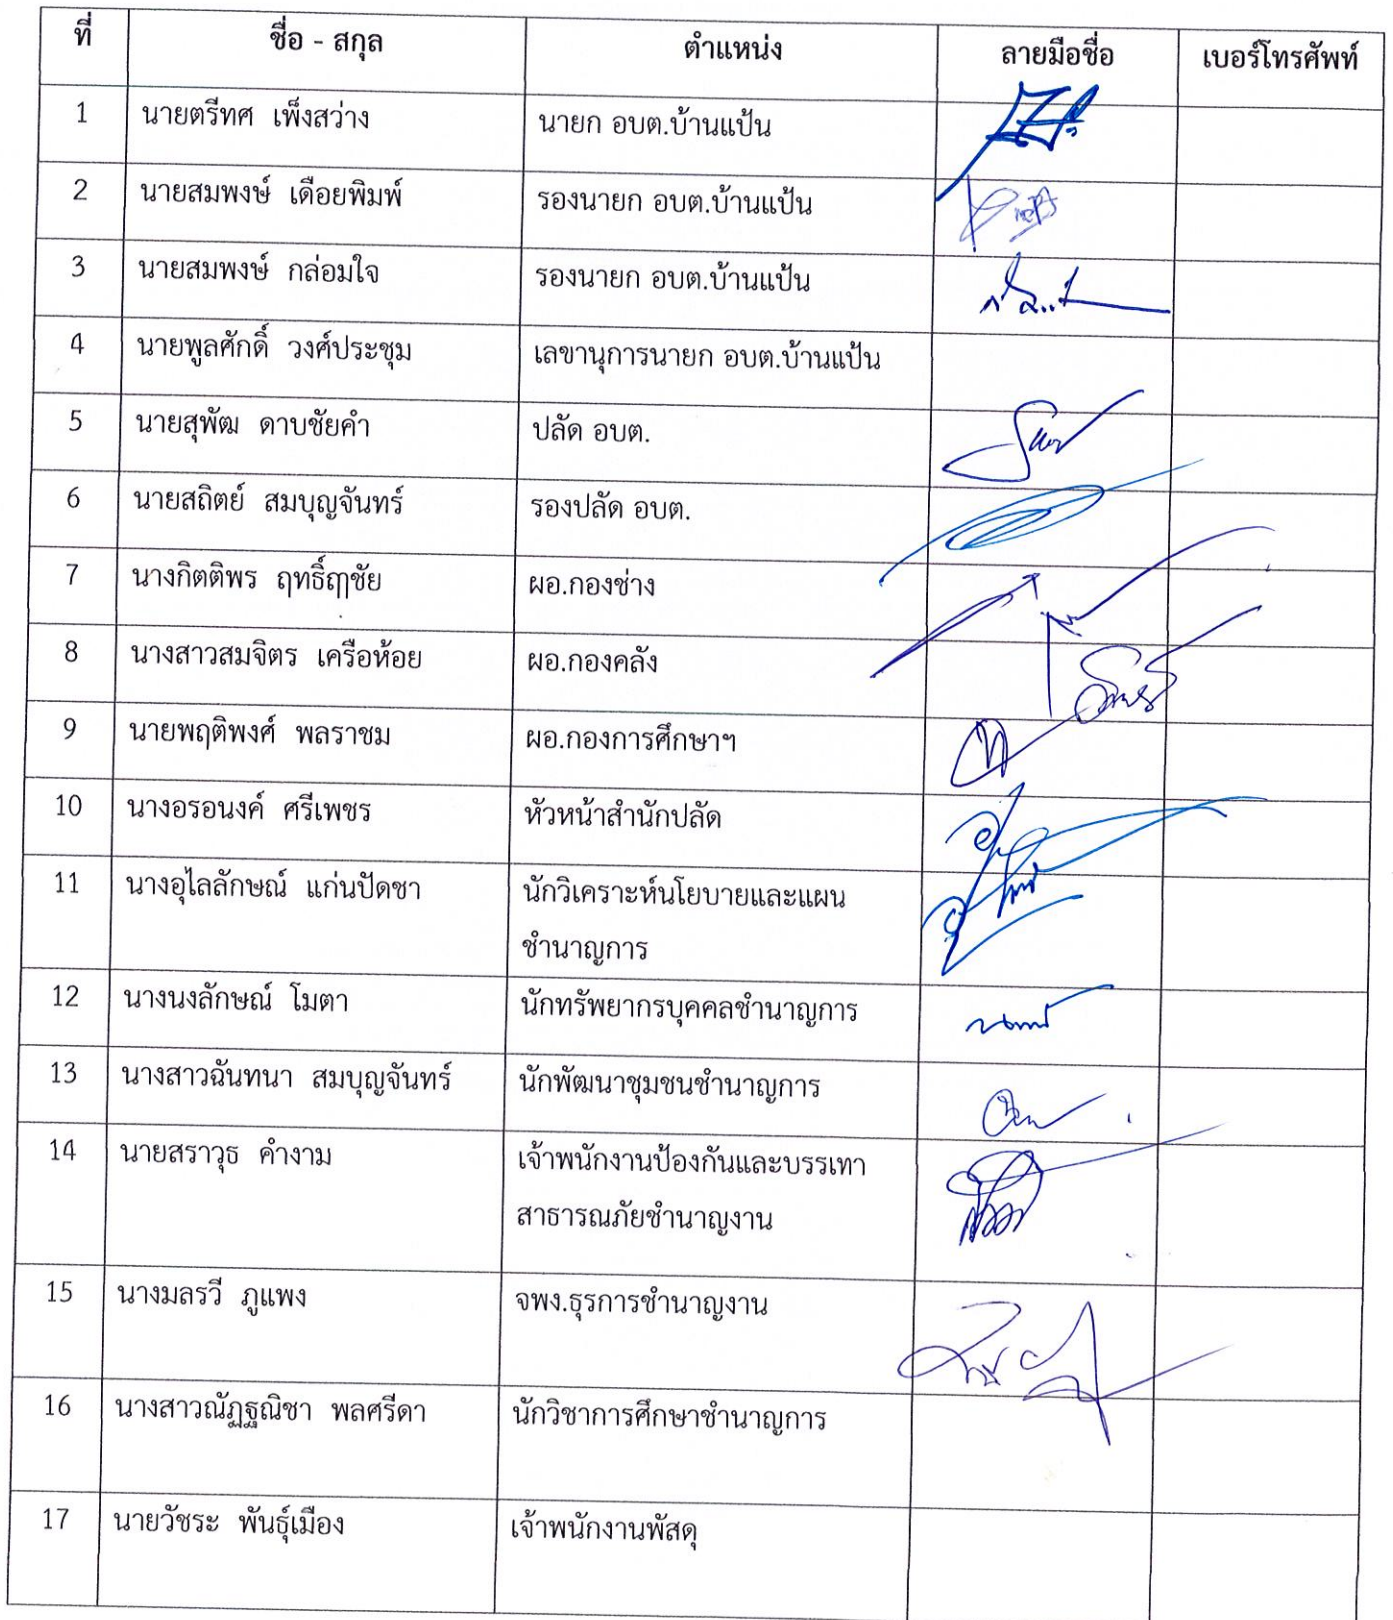 ที่ ชื่อ - สกุล ตำแหน่ง ลายมือชื่อ เบอร์โทรศัพท์
1 นายตรีทศ เพ็งสว่าง นายก อบต.บ้านแป้น
2 นายสมพงษ์ เดือยพิมพ์ รองนายก อบต.บ้านแป้น
3 นายสมพงษ์ กล่อมใจ รองนายก อบต.บ้านแป้น
4 นายพูลศักดิ์ วงศ์ประชุม เลขานุการนายก อบต.บ้านแป้น
5 นายสุพัฒ ดาบชัยคำ ปลัด อบต.
6 นายสถิตย์ สมบุญจันทร์ รองปลัด อบต.
7 นางกิตติพร ฤทธิ์ฤๅชัย ผอ.กองช่าง
8 นางสาวสมจิตร เครือห้อย ผอ.กองคลัง
9 นายพฤติพงศ์ พลราชม ผอ.กองการศึกษาฯ
10 นางอรอนงค์ ศรีเพชร หัวหน้าสำนักปลัด
11 นางอุไลลักษณ์ แก่นปัดชา นักวิเคราะห์นโยบายและแผน
ชำนาญการ
12 นางนงลักษณ์ โมตา นักทรัพยากรบุคคลชำนาญการ
13 นางสาวฉันทนา สมบุญจันทร์ นักพัฒนาชุมชนชำนาญการ
14 นายสราวุธ คำงาม เจ้าพนักงานป้องกันและบรรเทา
สาธารณภัยชำนาญงาน
15 นางมลรวี ภูแพง จพง.ธุรการชำนาญงาน
16 นางสาวณัฏฐณิชา พลศรีดา นักวิชาการศึกษาชำนาญการ
17 นายวัชระ พันธุ์เมือง เจ้าพนักงานพัสดุ